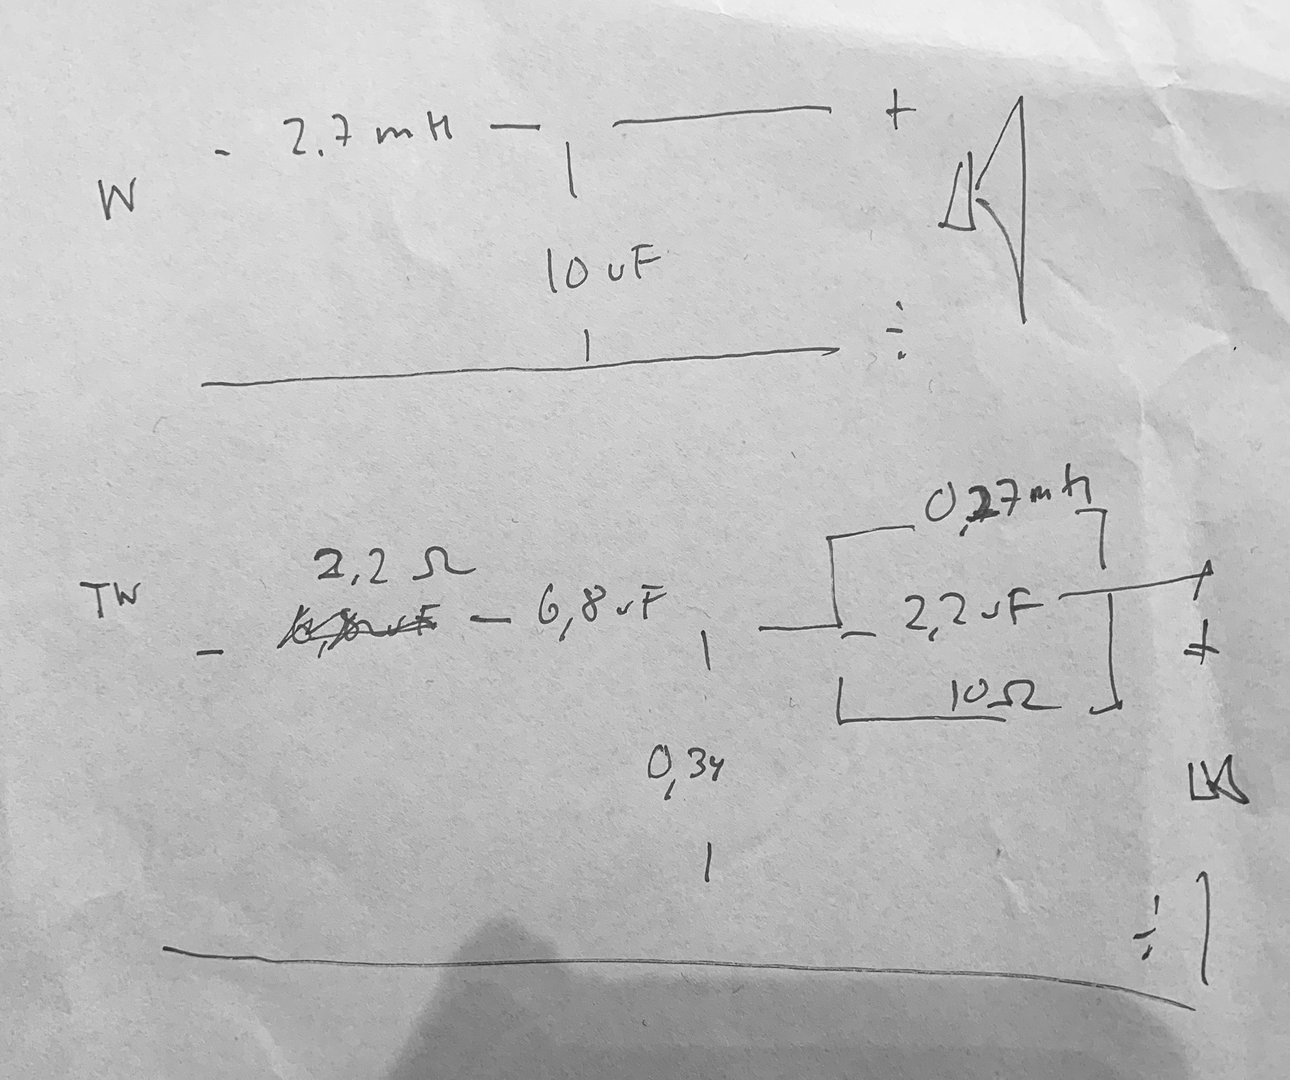 - 2.7 mH — +
W
10 uF
÷
0,27 mH
2,2 Ω
TW
- — 6,8 uF
— 2,2 uF
+
10Ω
0,34
÷